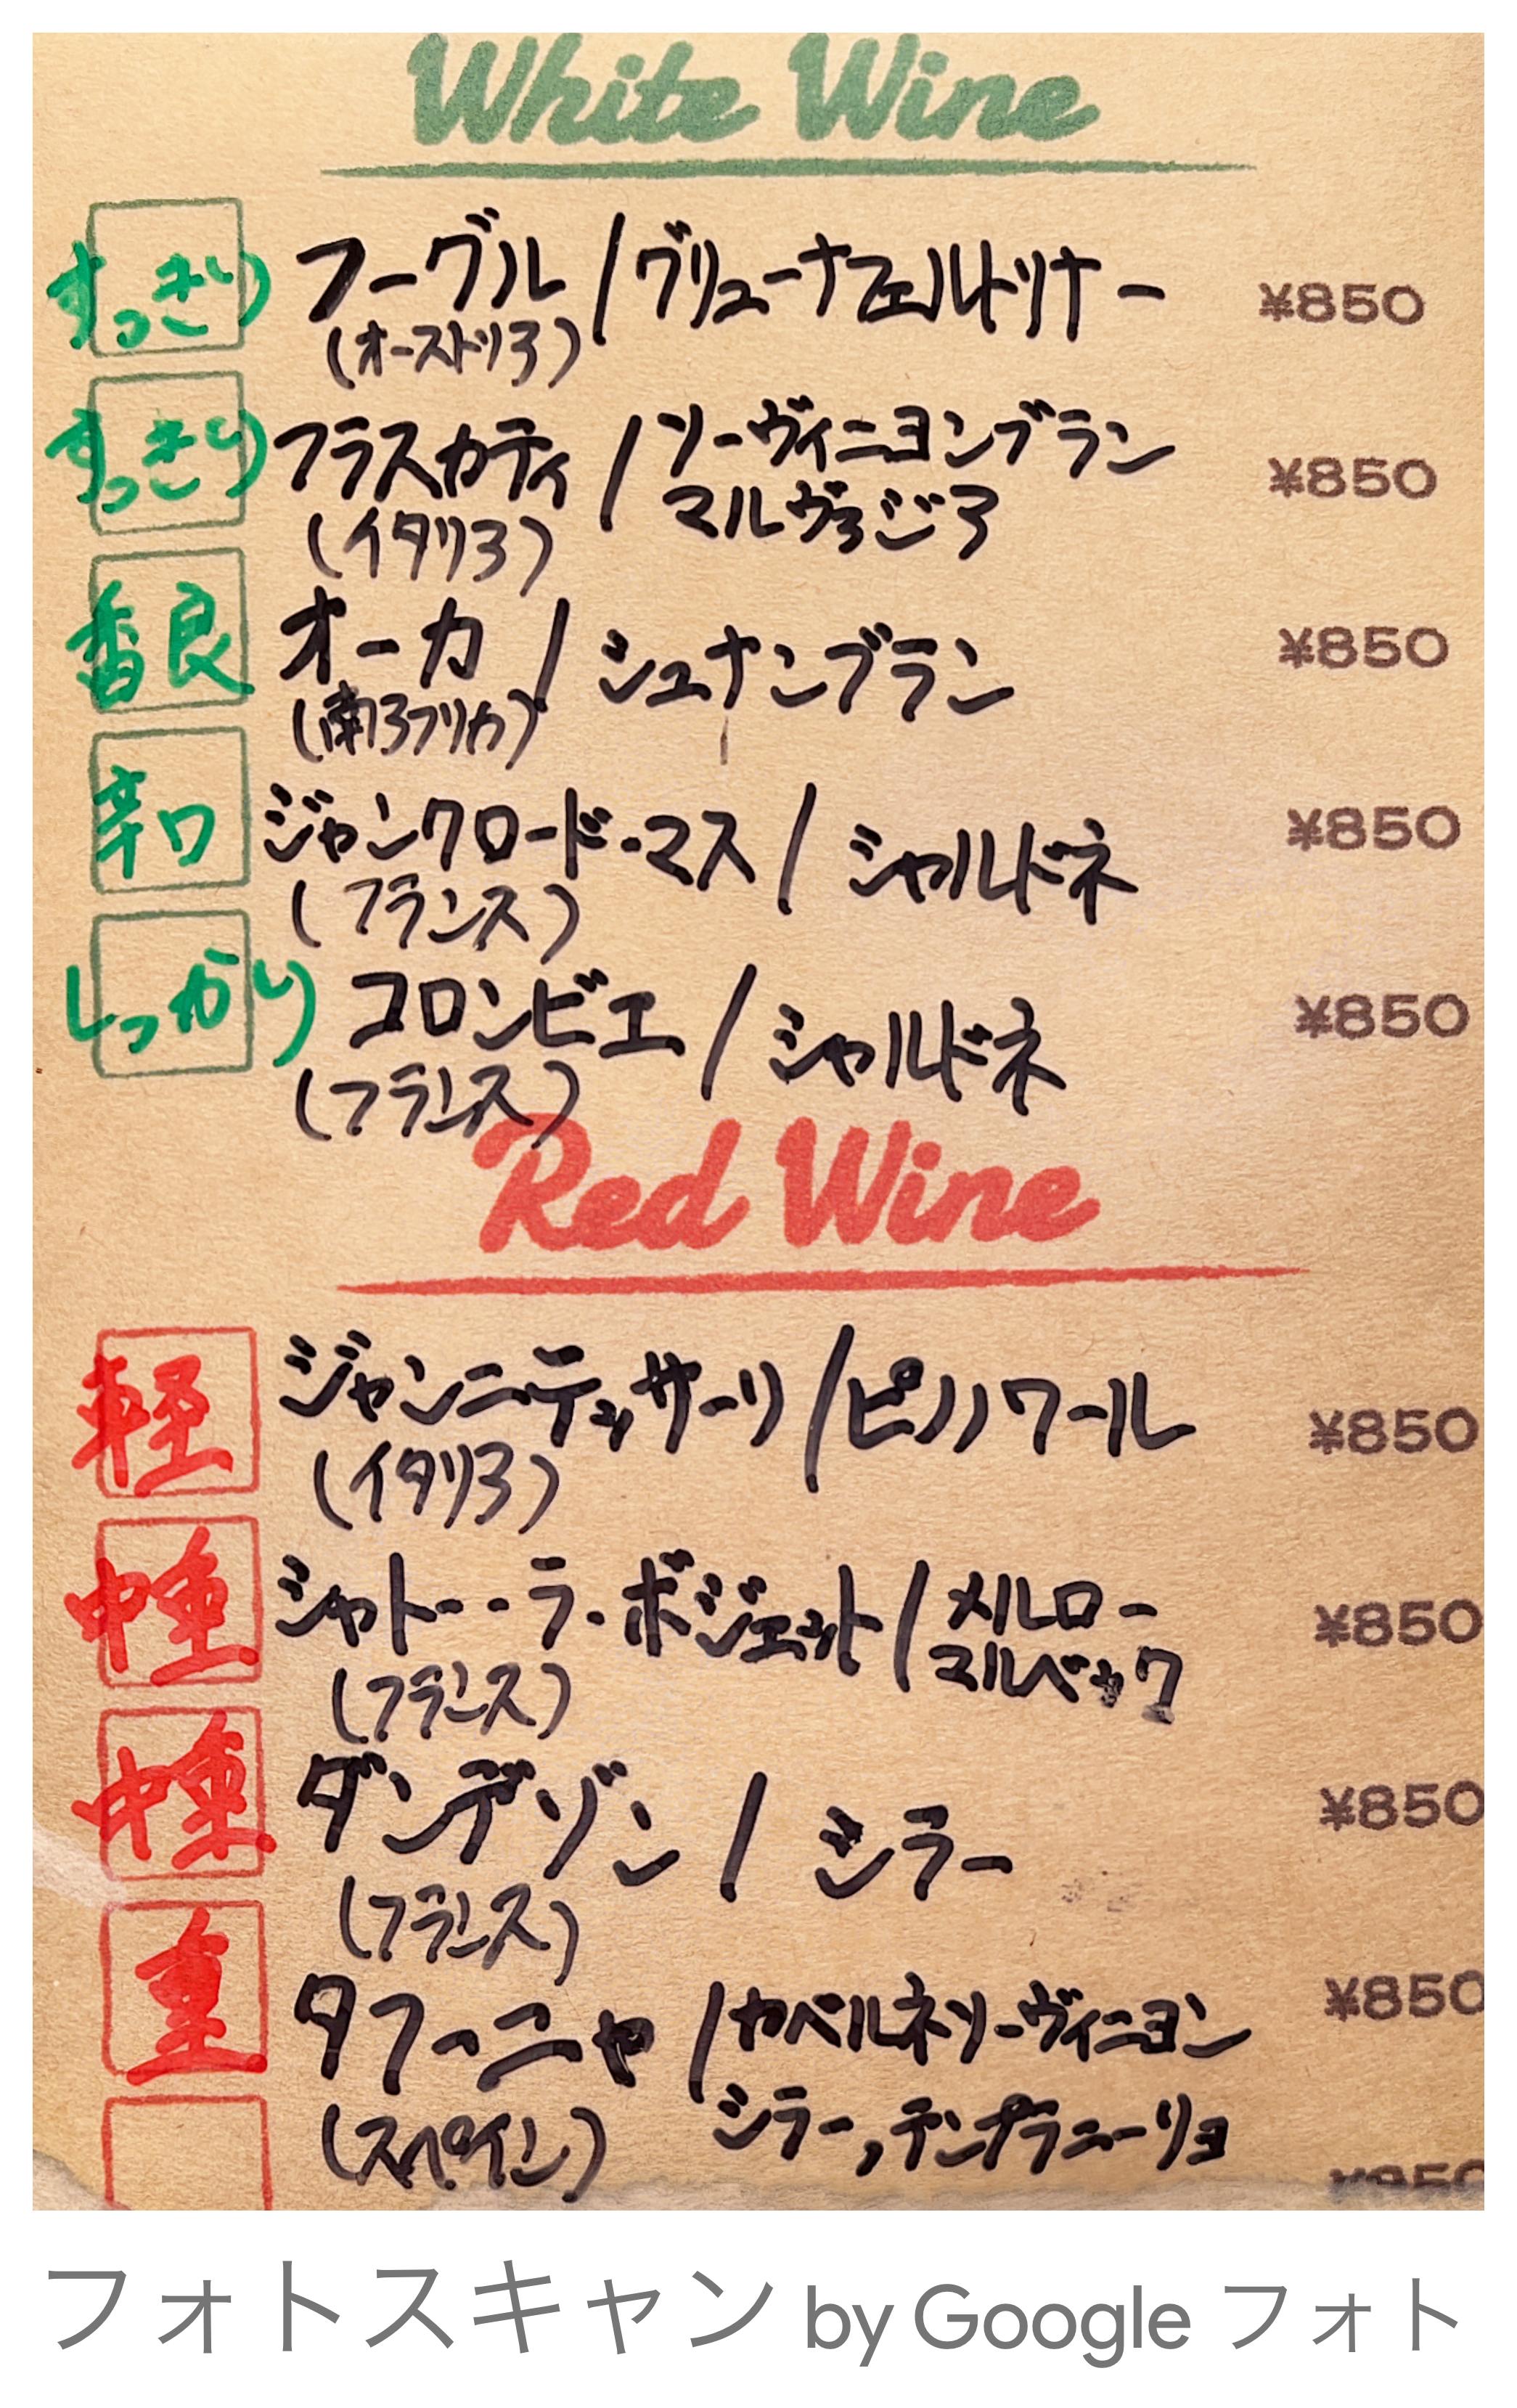 White Wine
すっきり フーグル / グリューナフェルトリナー ¥850
(オーストリア)
すっきり フラスカティ / ソーヴィニヨンブラン ¥850
マルヴァジア
(イタリア)
香良 オーカ / シュナンブラン ¥850
(南アフリカ)
辛口 ジャンクロード・マス / シャルドネ ¥850
(フランス)
しっかり コロンビエ / シャルドネ ¥850
(フランス)
Red Wine
軽 ジャンニテッサーリ / ピノノワール ¥850
(イタリア)
中重 シャトー・ラ・ボジェット / メルロー ¥850
マルベック
(フランス)
中重 ダンデゾン / シラー ¥850
(フランス)
重 タフーニャ / カベルネソーヴィニヨン ¥850
(スペイン) シラー,テンプラニーリョ
¥850
フォトスキャン by Google フォト